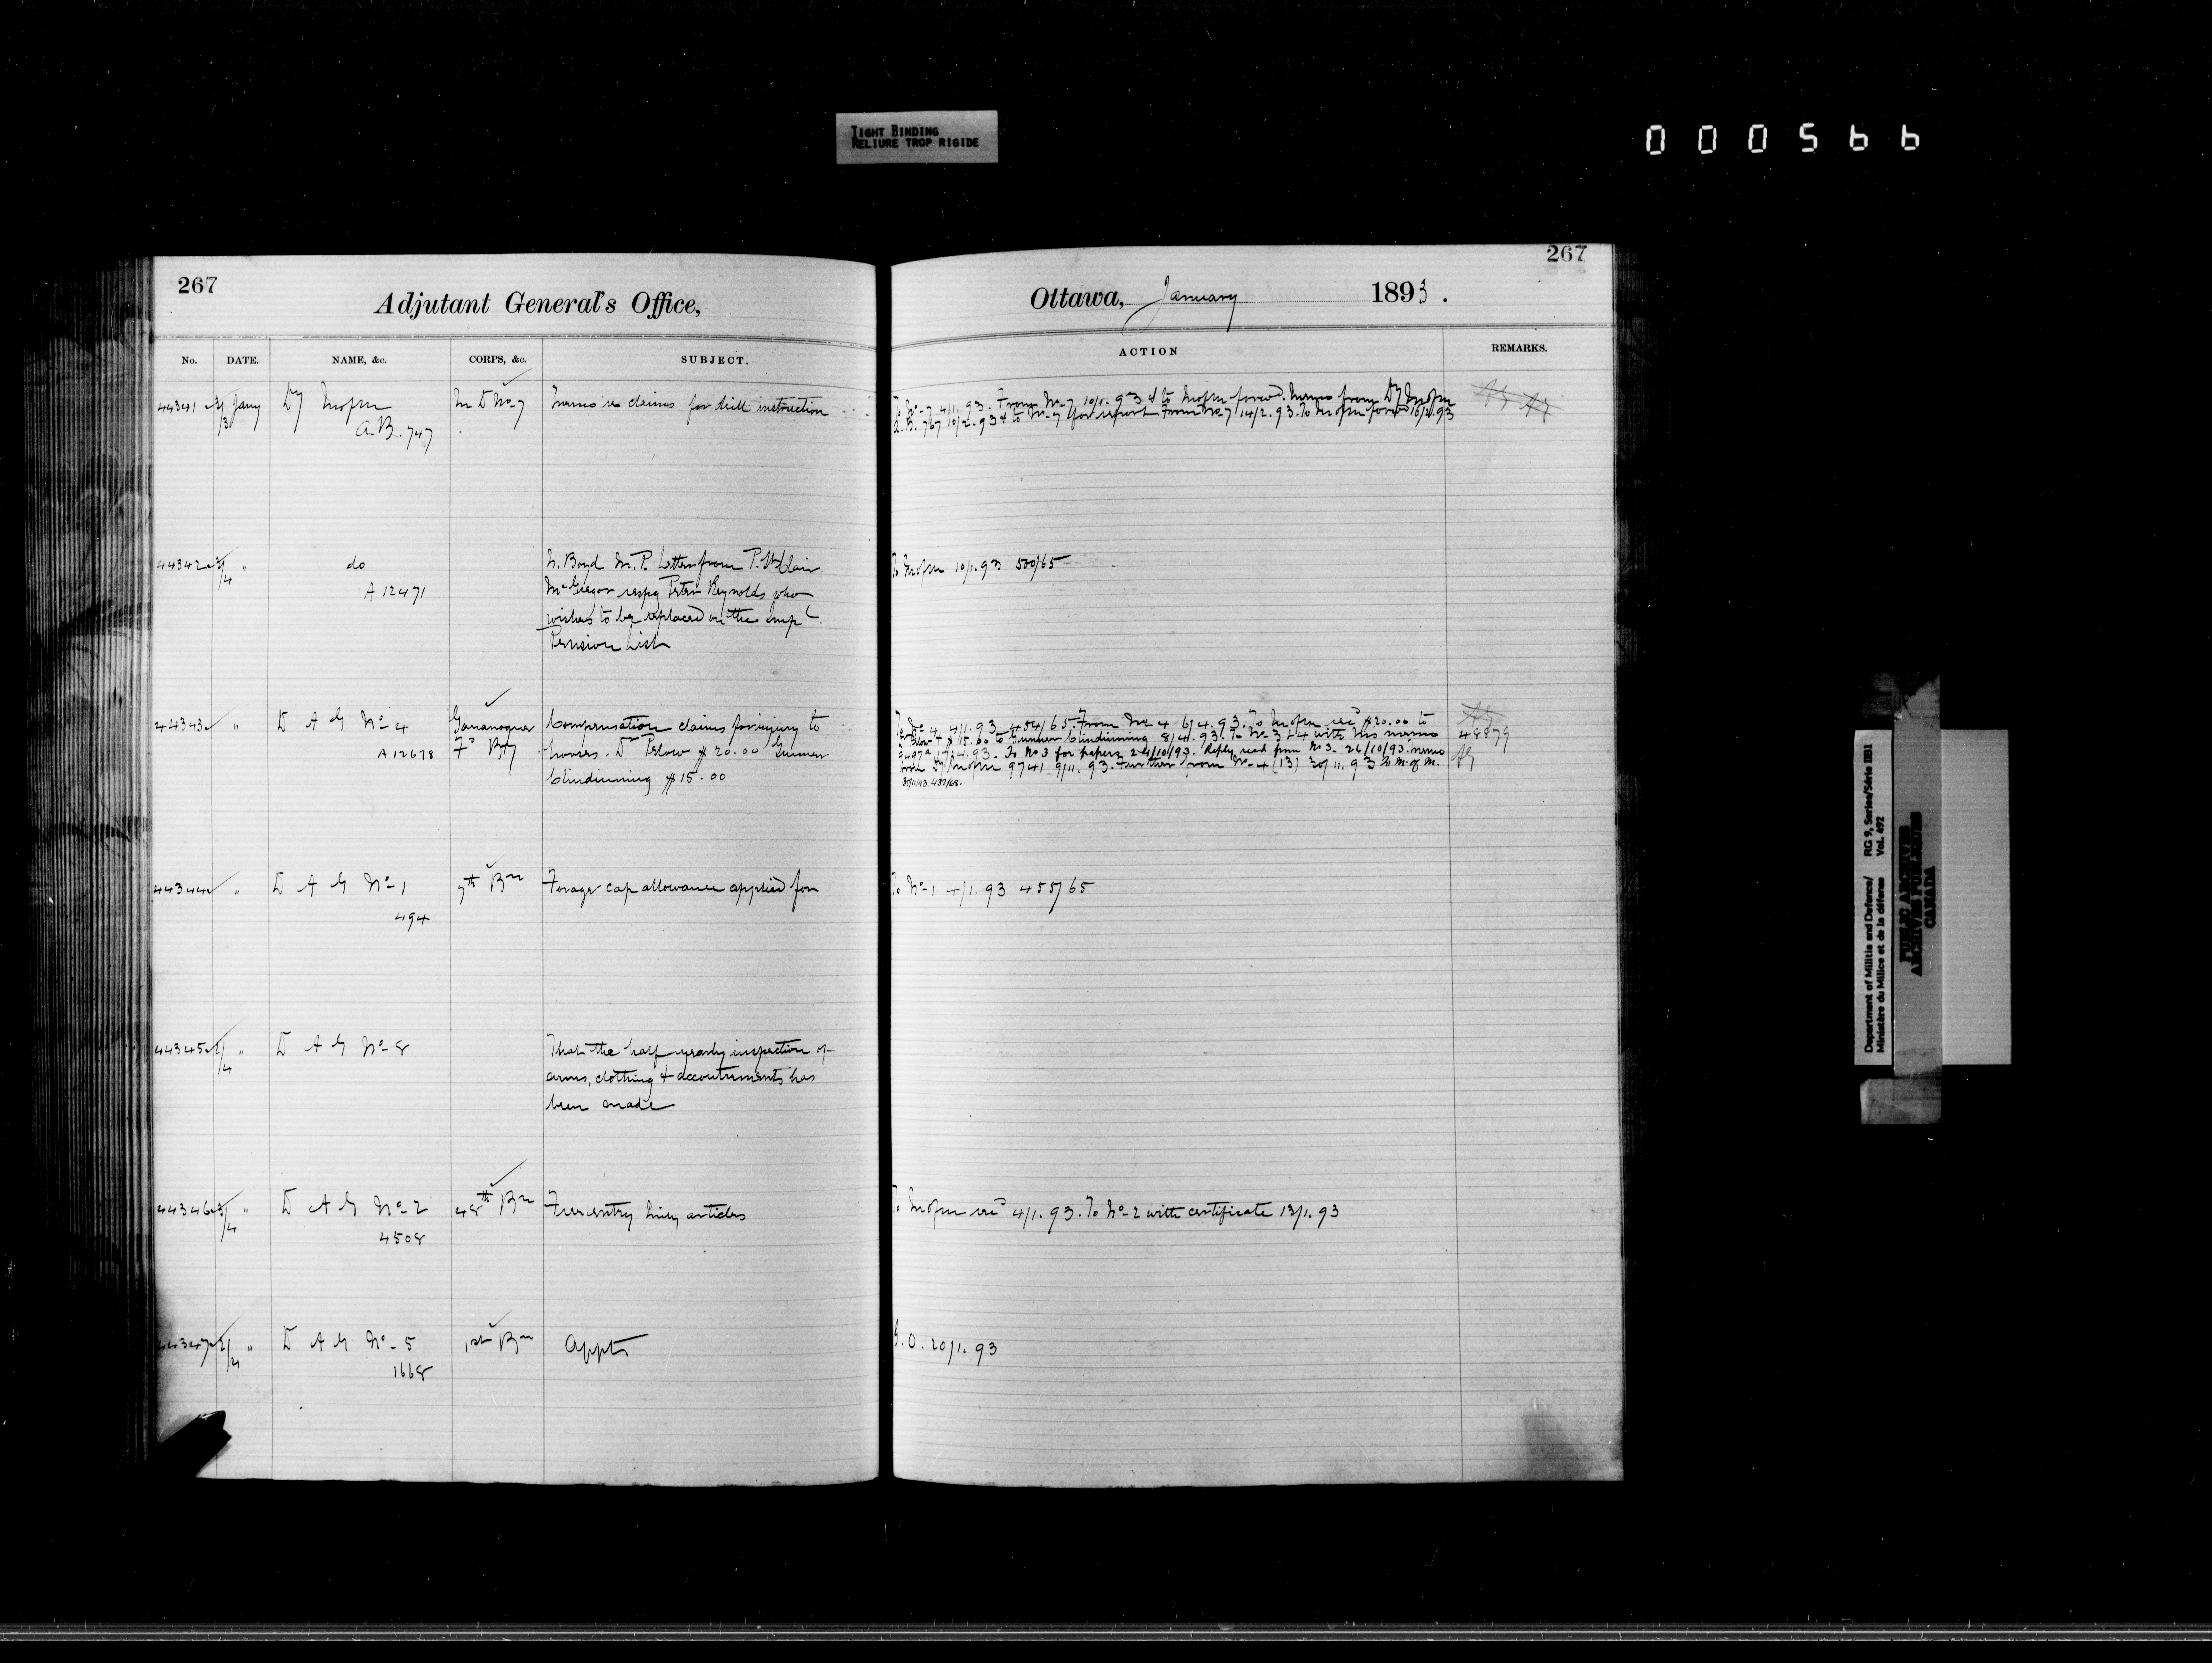 TIGHT BINDING
RELIURE TROP RIGIDE
000566
267
Adjutant General's Office,
No. DATE. NAME, &c. CORPS, &c. SUBJECT.
44341 3/3 Jany Dy M of M M D No 7 Memo re claims for drill instruction
A.B. 747
44342 3/4 " do Boyd M.P. Letter from P. St Clair
A 12471 McGregor respg Peter Reynolds who
wishes to be replaced on the Impl
Pension List
44343 " D A G No 4 Gananoque Compensation claims for injury to
A 12678 Fd Bty horses. $20.00 Gunner
Clindinning $15.00
44344 " D A G No 1 7th Bn Forage cap allowance applied for
494
44345 2/4 " D A G No 8 That the half yearly inspection of
arms, clothing & accoutrements has
been made
44346 3/4 " D A G No 2 48th Bn Free entry articles
4508
44347 2/4 " D A G No 5 1st Bn Appts
1668
267
Ottawa, January 1893.
ACTION REMARKS.
To No 7 4/1.93. From No 7 10/1.93 & to M of M forwd. Memo from Dy M of M
A.B. 767 10/2.93 & to No 7 for report From No 7 14/2.93. To M of M forwd 16/2.93
To M of M 10/1.93 500/65
4/1.93 454/65. From No 4 6/4.93. To M of M recd $20.00 to
$15.00 to Gunner Clindinning 8/4.93. To No 3 & 4 with his memo 48879
17/4.93. To No 3 for papers 24/10/93. Reply read from No 3. 26/10/93. memo
from Dy M of M 9741 9/11.93. Further from No 4 (13) 30/11.93 To M. of M.
To No 1 4/1.93 455/65
To M of M recd 4/1.93. To No 2 with certificate 13/1.93
G.O. 20/1.93
Department of Militia and Defence/ RG 9, Series/Série IIB1
Ministère du Milice et de la défense Vol. 492
PUBLIC ARCHIVES
ARCHIVES PUBLIQUES
CANADA